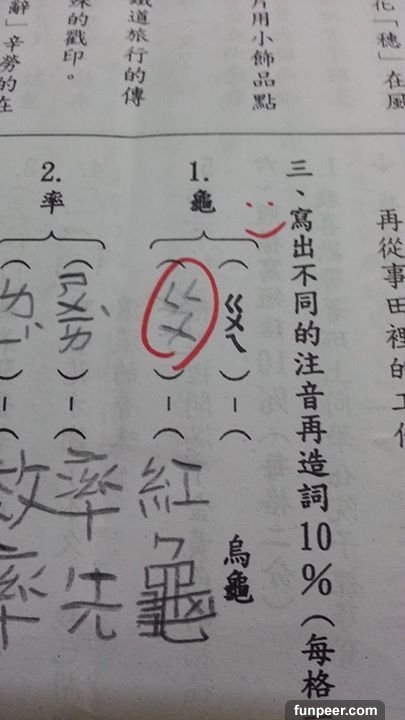 「穗」在風
用小飾品點
鐵道旅行的傳
殊的戳印。
辭」辛勞的在
再從事田裡的工作
三、寫出不同的注音再造詞10%(每格
1.龜
(ㄍㄨㄟ)-(烏龜
(ㄍㄨ)-(紅龜
2.率
(ㄕㄨㄞˋ)-(率先
( )-(效率
funpeer.com